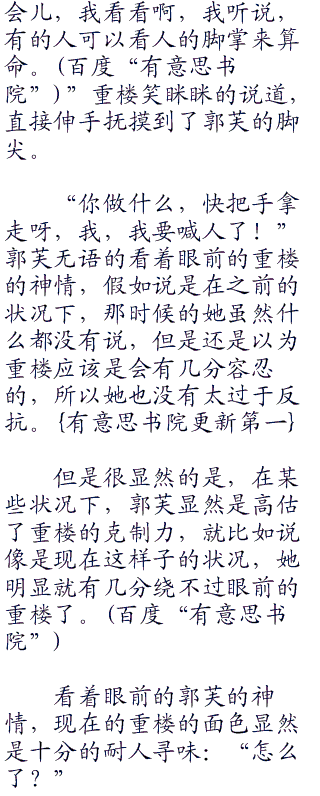 会儿，我看看啊，我听说，
有的人可以看人的脚掌来算
命。(百度“有意思书
院”)”重楼笑眯眯的说道，
直接伸手抚摸到了郭芙的脚
尖。
“你做什么，快把手拿
走呀，我，我要喊人了！”
郭芙无语的看着眼前的重楼
的神情，假如说是在之前的
状况下，那时候的她虽然什
么都没有说，但是还是以为
重楼应该是会有几分容忍
的，所以她也没有太过于反
抗。{有意思书院更新第一}
但是很显然的是，在某
些状况下，郭芙显然是高估
了重楼的克制力，就比如说
像是现在这样子的状况，她
明显就有几分绕不过眼前的
重楼了。(百度“有意思书
院”)
看着眼前的郭芙的神
情，现在的重楼的面色显然
是十分的耐人寻味：“怎么
了？”